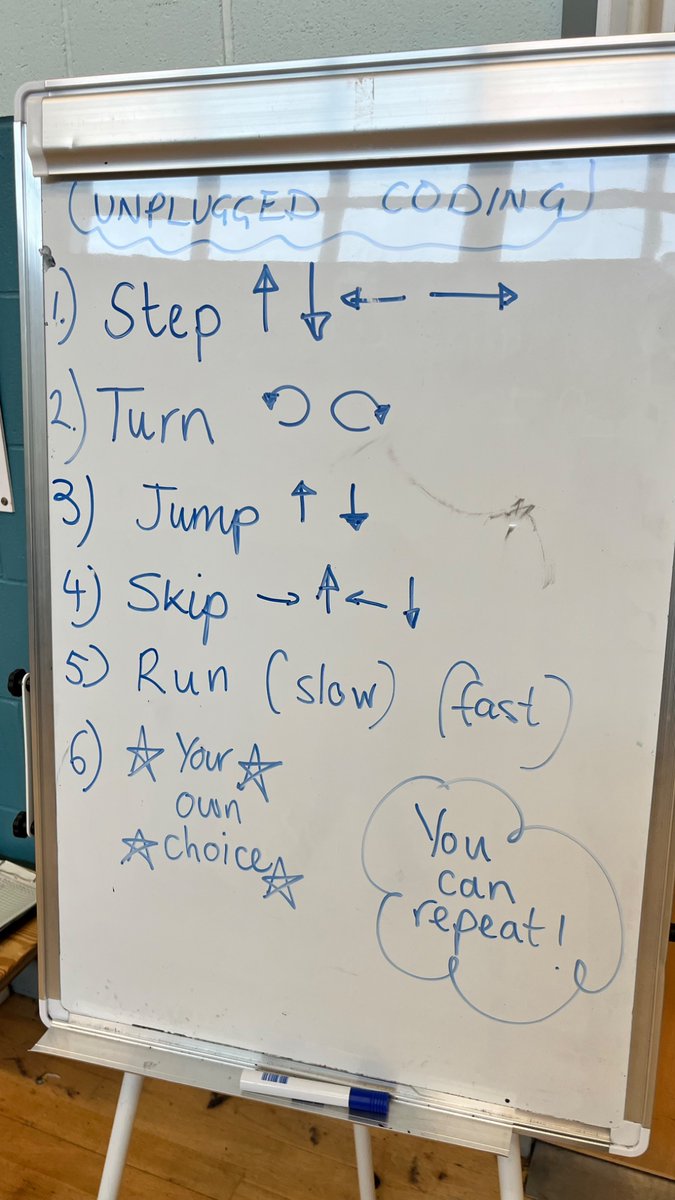 (UNPLUGGED CODING)
1.) Step ↑ ↓ ← →
2.) Turn ↺ ↻
3) Jump ↑ ↓
4) Skip → ↑ ← ↓
5) Run (slow) (fast)
6) ☆ Your ☆
own
☆ choice ☆
You
can
repeat!